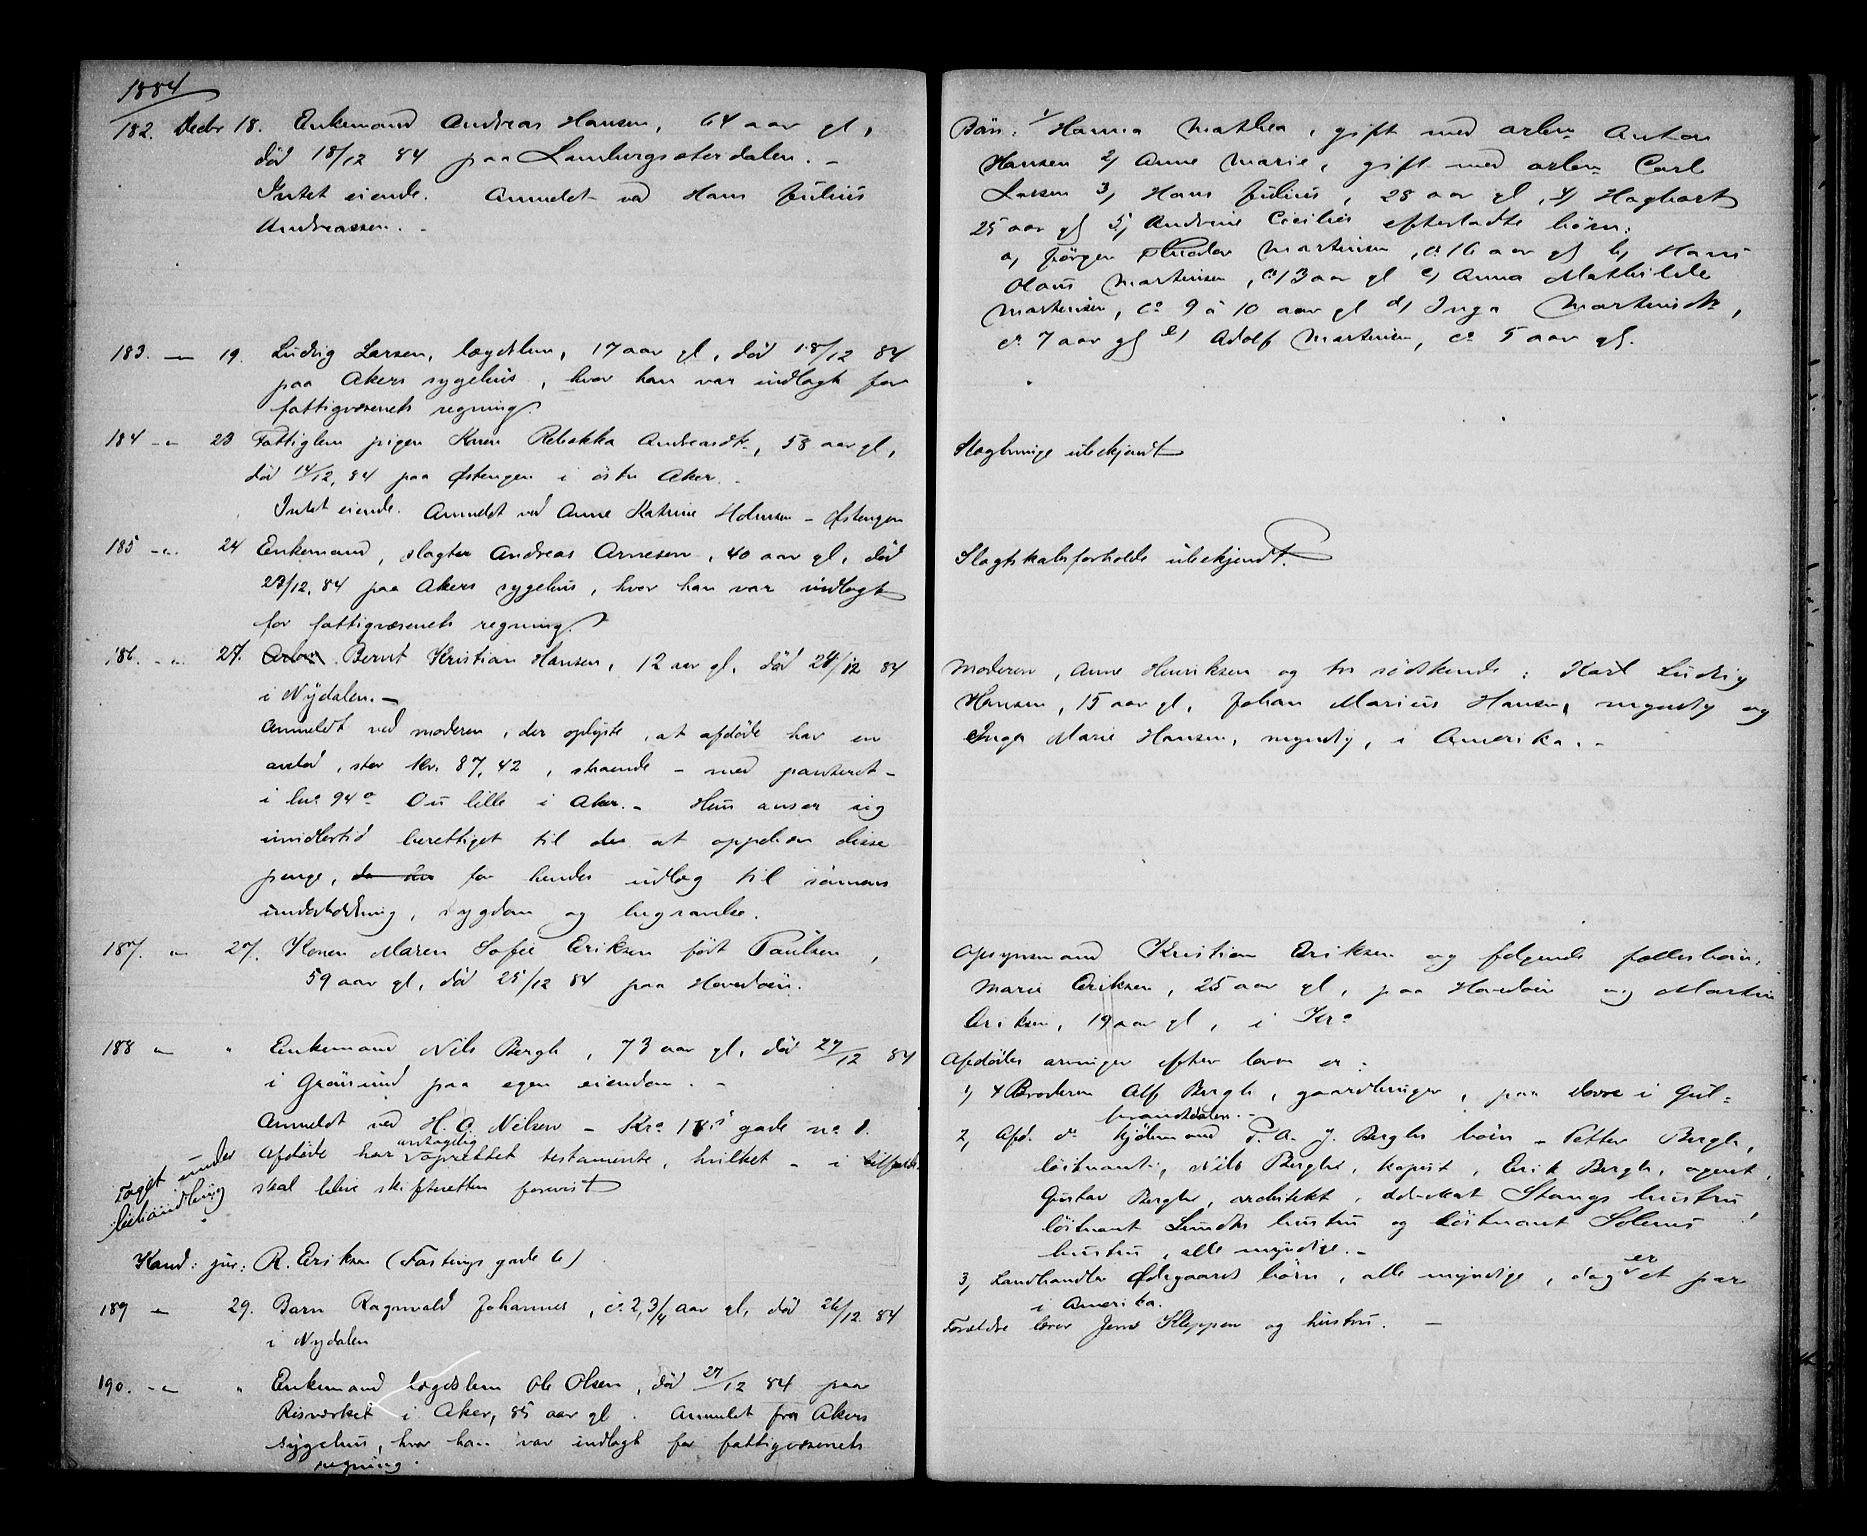 1884
182. Decbr 18. Enkemand Andreas Hansen, 64 aar gl,
død 18/12 84 paa Lambergseterdalen. -
Intet eiende. Anmeldt ved Hans Julius
Andreassen. -
183. - " - 19. Ludvig Larsen, lægdslem, 17 aar gl, død 18/12 84
paa Akers sygehus, hvor han var indlagt for
fattigvæsenets regning.
184 - " - 23 Fattiglem pigen Karen Rebekka Andreasdtr, 58 aar gl,
død 14/12, 84 paa Østengen i østre Aker. -
Intet eiende. Anmeldt ved Anne Katrine Holmsen - Østengen
185 - " - 24 Enkemand, slagter Andreas Arnesen, 40 aar gl, død
23/12, 84 paa Akers sygehus, hvor han var indlagt
for fattigvæsenets regning.
186. - " - 27. Bernt Kristian Hansen, 12 aar gl, død 24/12 84
i Nydalen. -
Anmeldt ved moderen, der oplyste, at afdøde har en
arvelod, stor Kr. 87,42, staaende - med panteret -
i lno 94a Ou lille i Aker. - Hun anser sig
imidlertid berettiget til at oppebære disse
penge, for hendes udlæg til sønnens
underholdning, sygdom og begravelse.
187. " 27. Konen Maren Sofie Eriksen født Paulsen,
59 aar gl, død 25/12 84 paa Hovedøen.
188 " " Enkemand Nils Bergh, 73 aar gl, død 27/12 84
i Grønsund paa egen eiendom. -
Anmeldt ved H. C. Nilsen - Kra gade no 8.
antagelig
Afdøde har oprettet testamente, hvilket - i tilfælde
skal blive skifteretten forevist
Taget under
behandling
Kand: jur: R. Eriksen (Fastings gade 6)
189 " 29. Barn Ragnvald Johannes, ca 2,3/4 aar gl, død 26/12 84
i Nydalen
190. - " " Enkemand lægdslem Ole Olsen, død 27/12 84 paa
Risværket i Aker, 85 aar gl. Anmeldt fra Akers
sygehus, hvor han var indlagt for fattigvæsenets
regning.
Børn: 1/ Hanna Mathea, gift med arbm Anton
Hansen 2/ Anne Marie, gift med arbm Carl
Larsen 3/ Hans Julius, 28 aar gl, 4/ Hagbart
25 aar gl 5/ Andrine Cecilies efterladte børn:
a/ Jørgen Theodor Martinsen, ca 16 aar gl b/ Hans
Olaus Martinsen, ca 13 aar gl c/ Anna Mathilde
Martinsen, ca 9 à 10 aar gl d/ Inga Martinsdtr,
ca 7 aar gl e/ Adolf Martinsen, ca 5 aar gl.
Slægtninge ubekjendt
Slægtskabsforholde ubekjendt.
Moderen, Anne Henriksen og tre sødskende: Karl Ludvig
Hansen, 15 aar gl, Johan Marius Hansen, myndig og
Inga Marie Hansen, myndig, i Amerika. -
Opsynsmand Kristian Eriksen og følgende fællesbørn,
Marie Eriksen, 25 aar gl, paa Hovedøen og Martin
Eriksen, 19 aar gl, i Kra
Afdødes arvinger efter loven er:
1/ Broderen Alf Bergh, gaardbruger, paa Dovre i Gul-
brandsdalen. -
2, Afd. do kjøbmand P. A. J. Berghs børn - Petter Bergh,
løitnant, Nils Bergh, kopist, Erik Bergh, agent,
Gustav Bergh, arkitekt, advokat Stangs hustru,
løitnant Lunds hustru og løitnant Solems
hustru, alle myndige. -
3, Landhandler Ødegaards børn, alle myndige, dog er et par
i Amerika.
Forældre Jens Kleppen og hustru. -